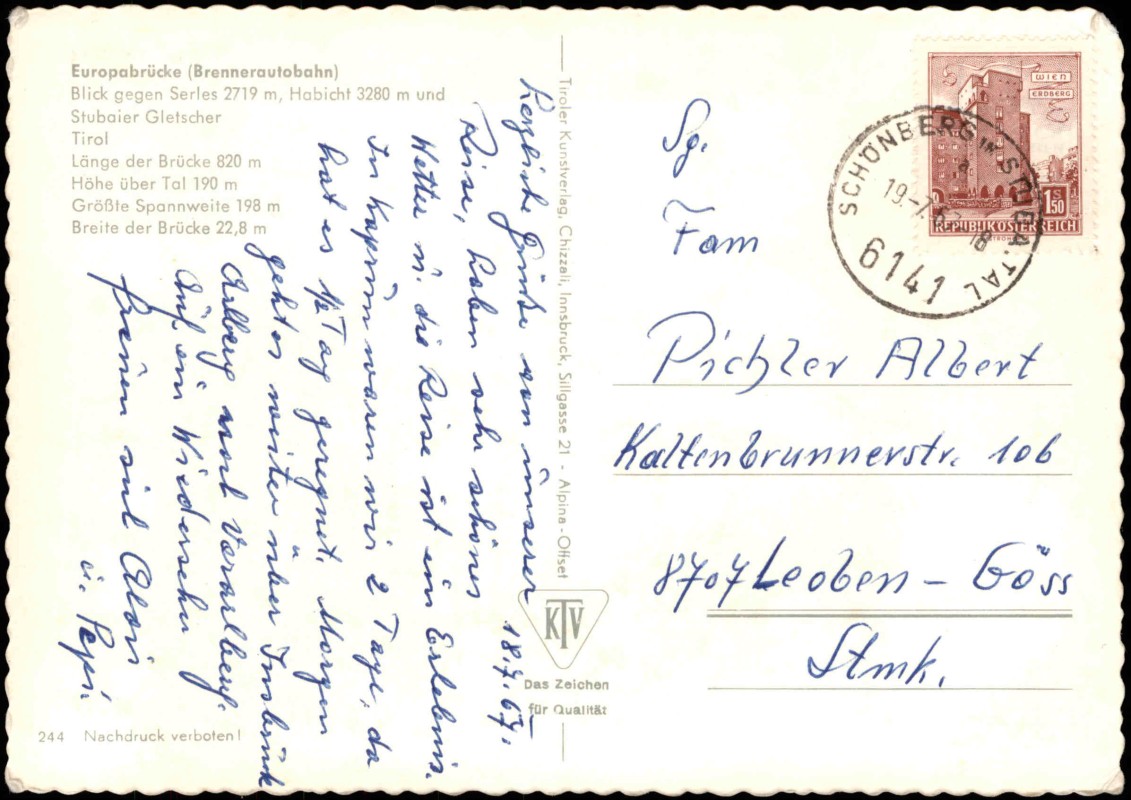 Europabrücke (Brennerautobahn)
Blick gegen Serles 2719 m, Habicht 3280 m und
Stubaier Gletscher
Tirol
Länge der Brücke 820 m
Höhe über Tal 190 m
Größte Spannweite 198 m
Breite der Brücke 22,8 m
18.7.67.
Herzliche Grüße von unserer
Reise, haben sehr schönes
Wetter u. die Reise ist ein Erlebnis.
In Kaprun waren wir 2 Tage, da
hat es 1/2 Tag geregnet. Morgen
geht es weiter über Insbruck
Arlberg und Vorarlberg.
Auf ein Wiedersehn
freuen sich Alois
u. Pepi.
244 Nachdruck verboten!
Tiroler Kunstverlag, Chizzali, Innsbruck, Sillgasse 21 - Alpina-Offset
KTV
Das Zeichen
für Qualität
WIEN
ERDBERG
1 S 50
REPUBLIK ÖSTERREICH
SCHÖNBERG IM STUBAITAL
a
19-7.67-18
6141
Sg.
Fam
Pichler Albert
Kaltenbrunnerstr. 106
8707 Leoben - Göss
Stmk.